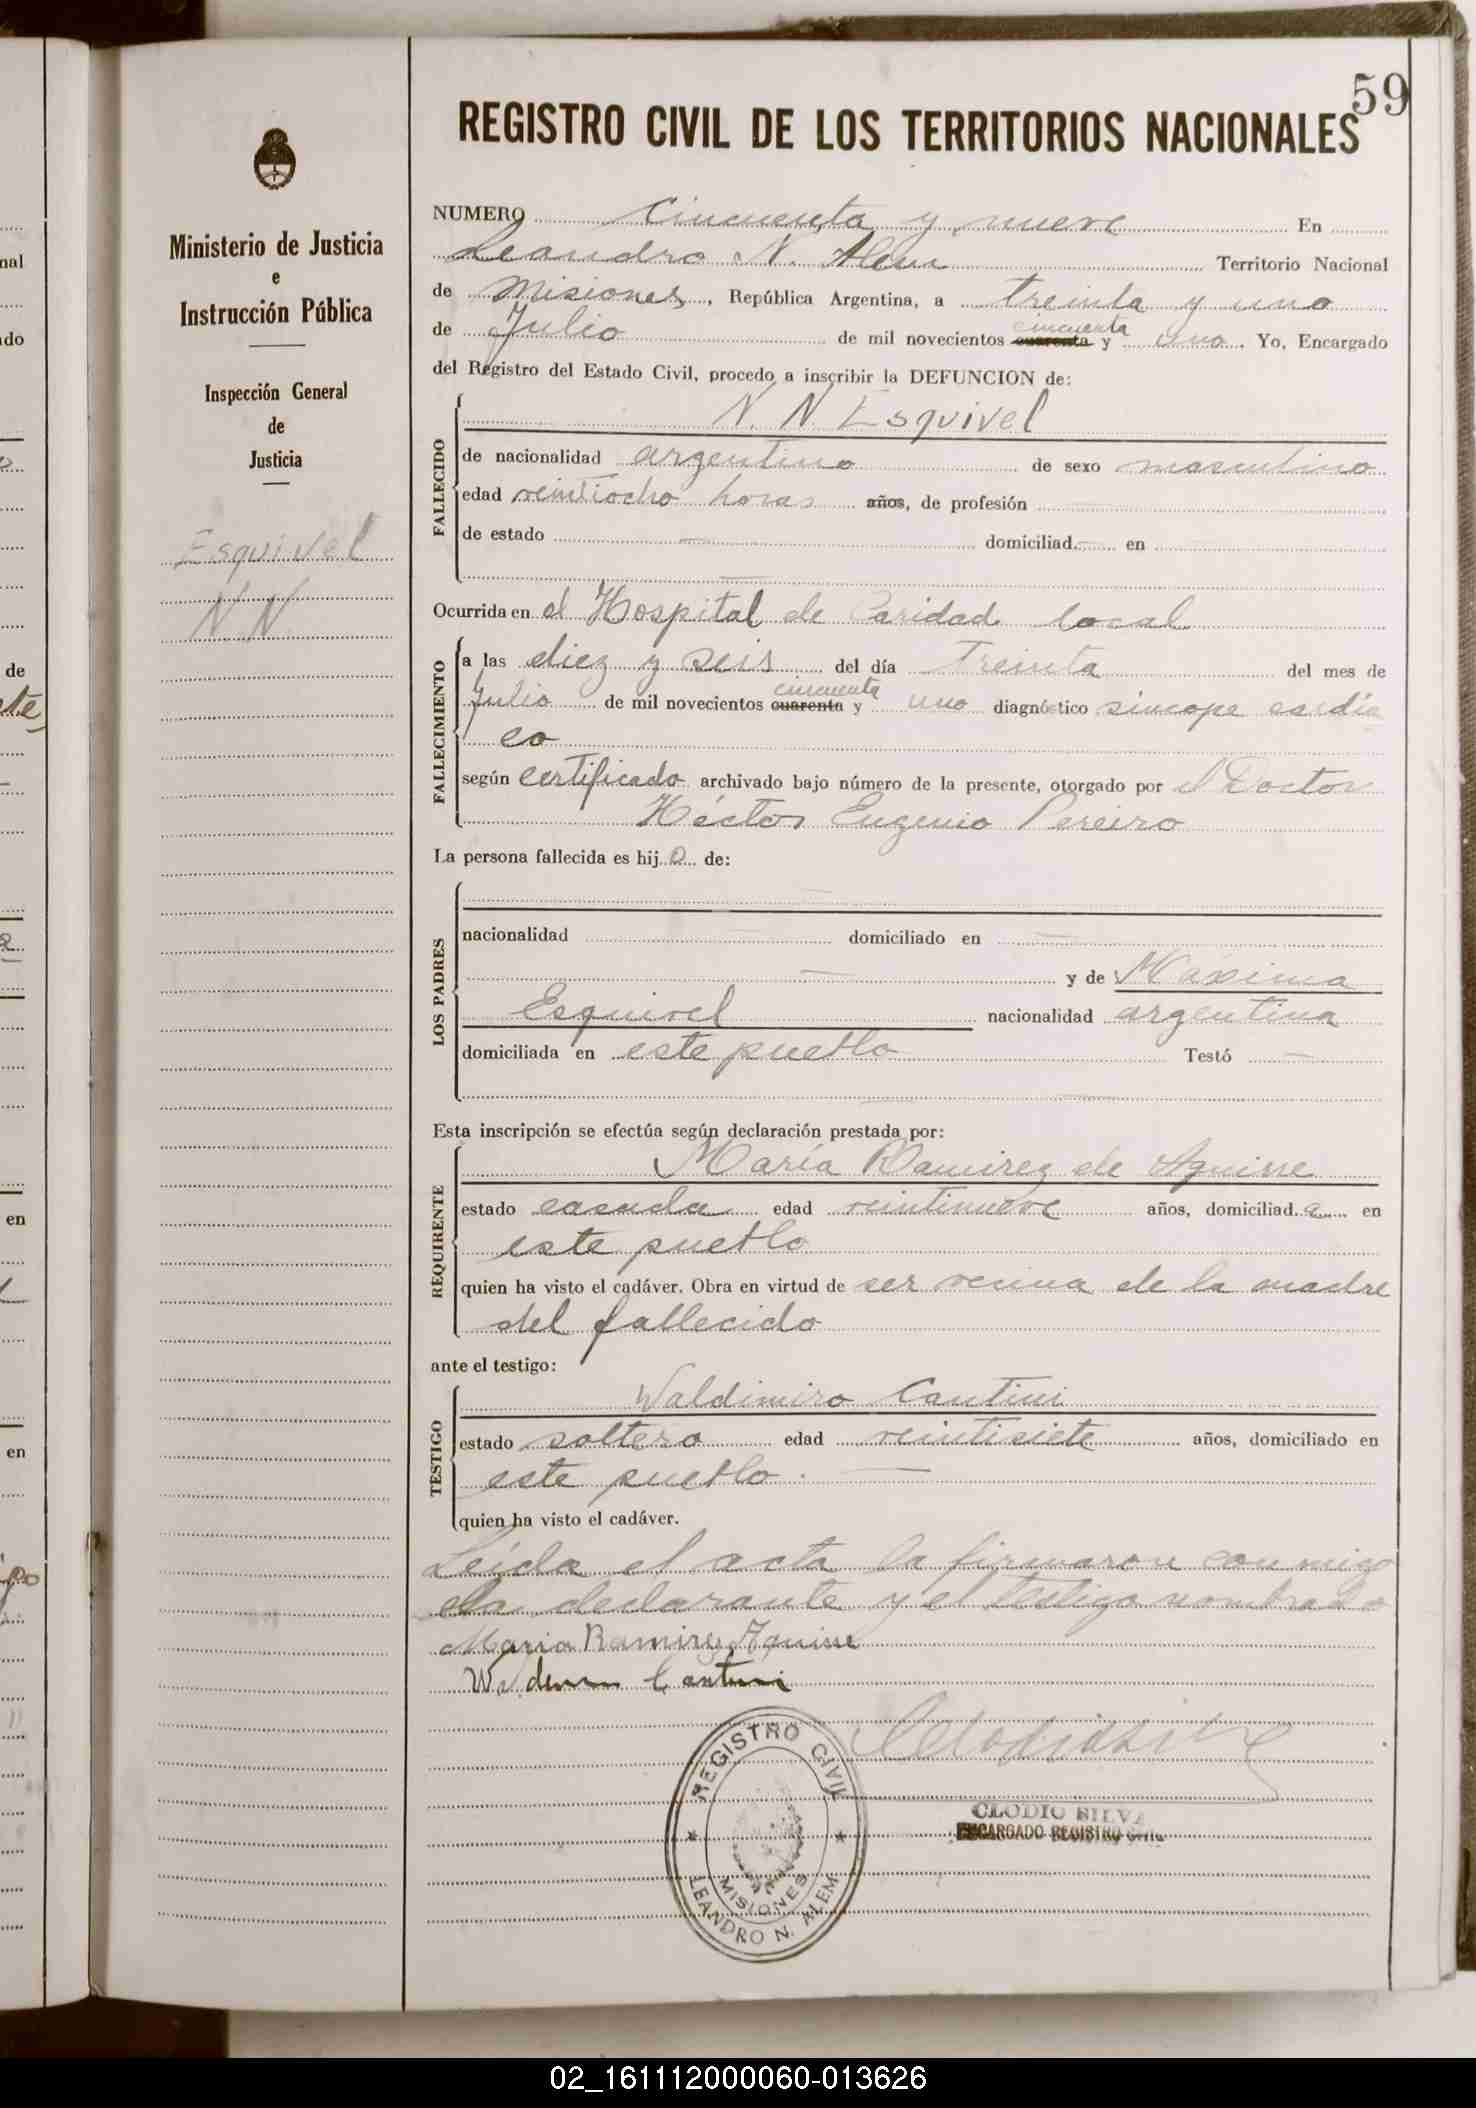 59
REGISTRO CIVIL DE LOS TERRITORIOS NACIONALES
Ministerio de Justicia
e
Instrucción Pública
Inspección General
de
Justicia
Esquivel
N N
NUMERO cincuenta y nueve En
Leandro N. Alem Territorio Nacional
de Misiones, República Argentina, a treinta y uno
de Julio de mil novecientos cuarenta cincuenta y uno. Yo, Encargado
del Registro del Estado Civil, procedo a inscribir la DEFUNCION de:
FALLECIDO
N. N. Esquivel
de nacionalidad argentino de sexo masculino
edad veintiocho horas años, de profesión
de estado — domiciliad — en
Ocurrida en el Hospital de Caridad local
FALLECIMIENTO
a las diez y seis del día treinta del mes de
Julio de mil novecientos cuarenta cincuenta y uno diagnóstico síncope cardía
co
según certificado archivado bajo número de la presente, otorgado por el Doctor
Héctor Eugenio Pereiro
La persona fallecida es hijo de:
LOS PADRES
nacionalidad — domiciliado en —
— y de Máxima
Esquivel nacionalidad argentina
domiciliada en este pueblo Testó —
Esta inscripción se efectúa según declaración prestada por:
REQUIRENTE
María Ramirez de Aguirre
estado casada edad veintinueve años, domiciliada en
este pueblo
quien ha visto el cadáver. Obra en virtud de ser vecina de la madre
del fallecido
ante el testigo:
TESTIGO
Waldimiro Cantini
estado soltero edad veintisiete años, domiciliado en
este pueblo. —
quien ha visto el cadáver.
Leída el acta la firmaron conmigo
la declarante y el testigo nombrado
Maria Ramirez Aguirre
REGISTRO CIVIL
MISIONES
LEANDRO N. ALEM
CLODIO SILVA
ENCARGADO REGISTRO CIVIL
nal
do
de
en
en
02_161112000060-013626